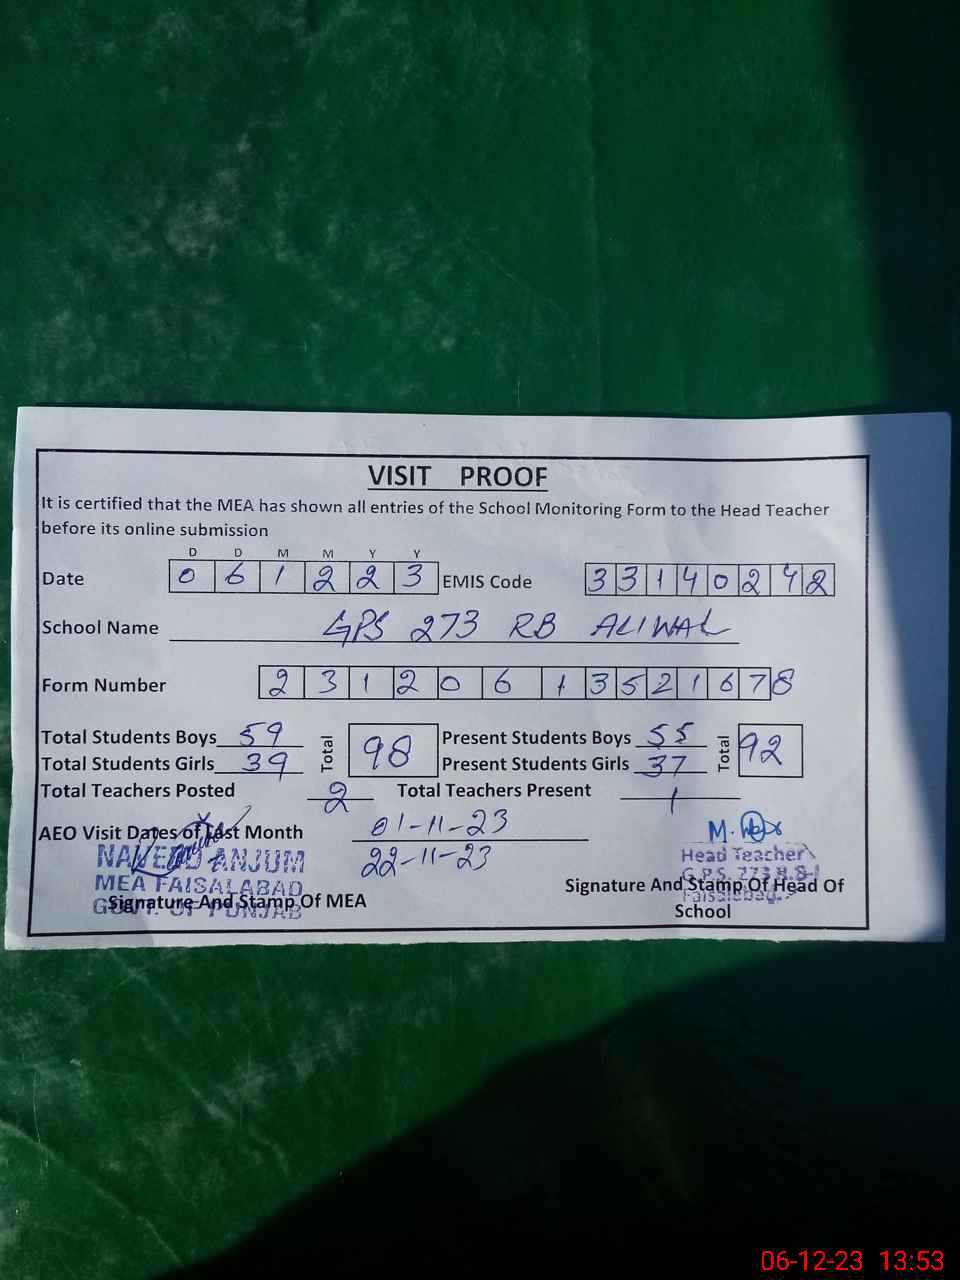 VISIT PROOF
It is certified that the MEA has shown all entries of the School Monitoring Form to the Head Teacher
before its online submission
D D M M Y Y
Date 0 6 1 2 2 3 EMIS Code 3 3 1 4 0 2 4 2
School Name GPS 273 RB ALIWAL
Form Number 2 3 1 2 0 6 1 3 5 2 1 6 7 8
Total Students Boys 59 Total 98 Present Students Boys 55 Total 92
Total Students Girls 39 Present Students Girls 37
Total Teachers Posted 2 Total Teachers Present 1
AEO Visit Dates of Last Month 01-11-23
22-11-23
NAVEED ANJUM
MEA FAISALABAD
GOVT. OF PUNJAB
Signature And Stamp Of MEA
M.
Head Teacher
G.P.S. 273 R.B
Faisalabad.
Signature And Stamp Of Head Of
School
06-12-23 13:53